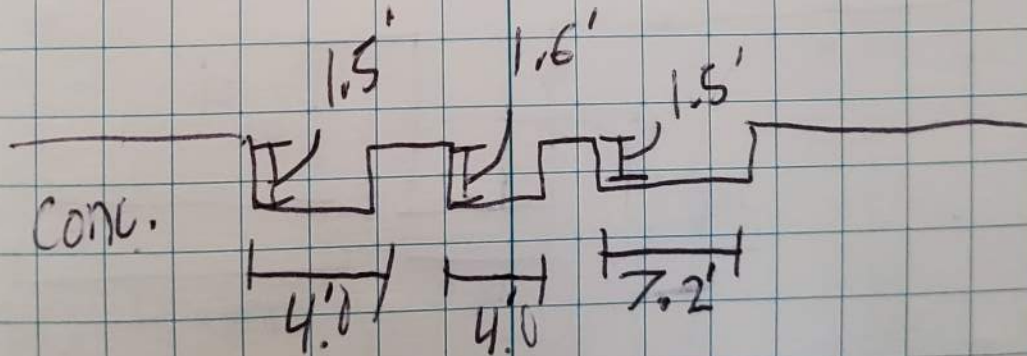 1.5' 1.6' 1.5'
Conc.
4.0' 4.0' 7.2'